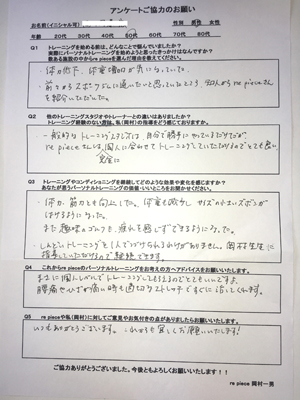 アンケートご協力のお願い
お名前(イニシャル可)
性別 男性 女性
年齢 20代 30代 40代 50代 60代 70代 80代
Q1 トレーニングを始める前は、どんなことで悩んでいましたか？
実際にパーソナルトレーニングをしようと思ったきっかけはなんですか？
数ある施設の中からre pieceを選んだ理由を教えてください。
・体力低下、体重増加が気になっていた。
・前々からスポーツジムに通いたいと思っていたところ、知人からre pieceさん
を紹介いただいた。
Q2 他のトレーニングスタジオやトレーナーとの違いはありますか？
トレーニング経験のない方は、私(岡村)の指導をどう感じておりますか。
・一般的なトレーニングスタジオは、自分で勝手にやっているだけだが、
re pieceでは個人に合わせてトレーニングしていただけるのでとても良い
完全に
Q3 トレーニングやコンディショニングを継続してどのような効果や変化を感じますか？
あなたが思うパーソナルトレーニングの価値・いいところをお聞かせください。
・体力、筋力とも向上した。体重も減少し、サイズの小さいズボンが
はけるようになった。
また趣味のゴルフも、疲れを感じずできるようになった。
・しんどいトレーニングを1人でつづけられるわけがありません。岡村先生に
指導していただけるので継続できます。
Q4 これからre pieceのパーソナルトレーニングをお考えの方へアドバイスをお願いいたします。
まさに個人レベルでトレーニングしてもらえるのでとてもいいですよ。
腰痛やひざが痛い時も適切なストレッチですぐに治してくれます。
Q5 re pieceや私(岡村)に対してご意見やお気付きの点がありましたらお願いします。
いつもありがとうございます。これからも宜しくお願いいたします！
ご協力ありがとうございました。今後ともよろしくお願い致します！！
re piece 岡村一男